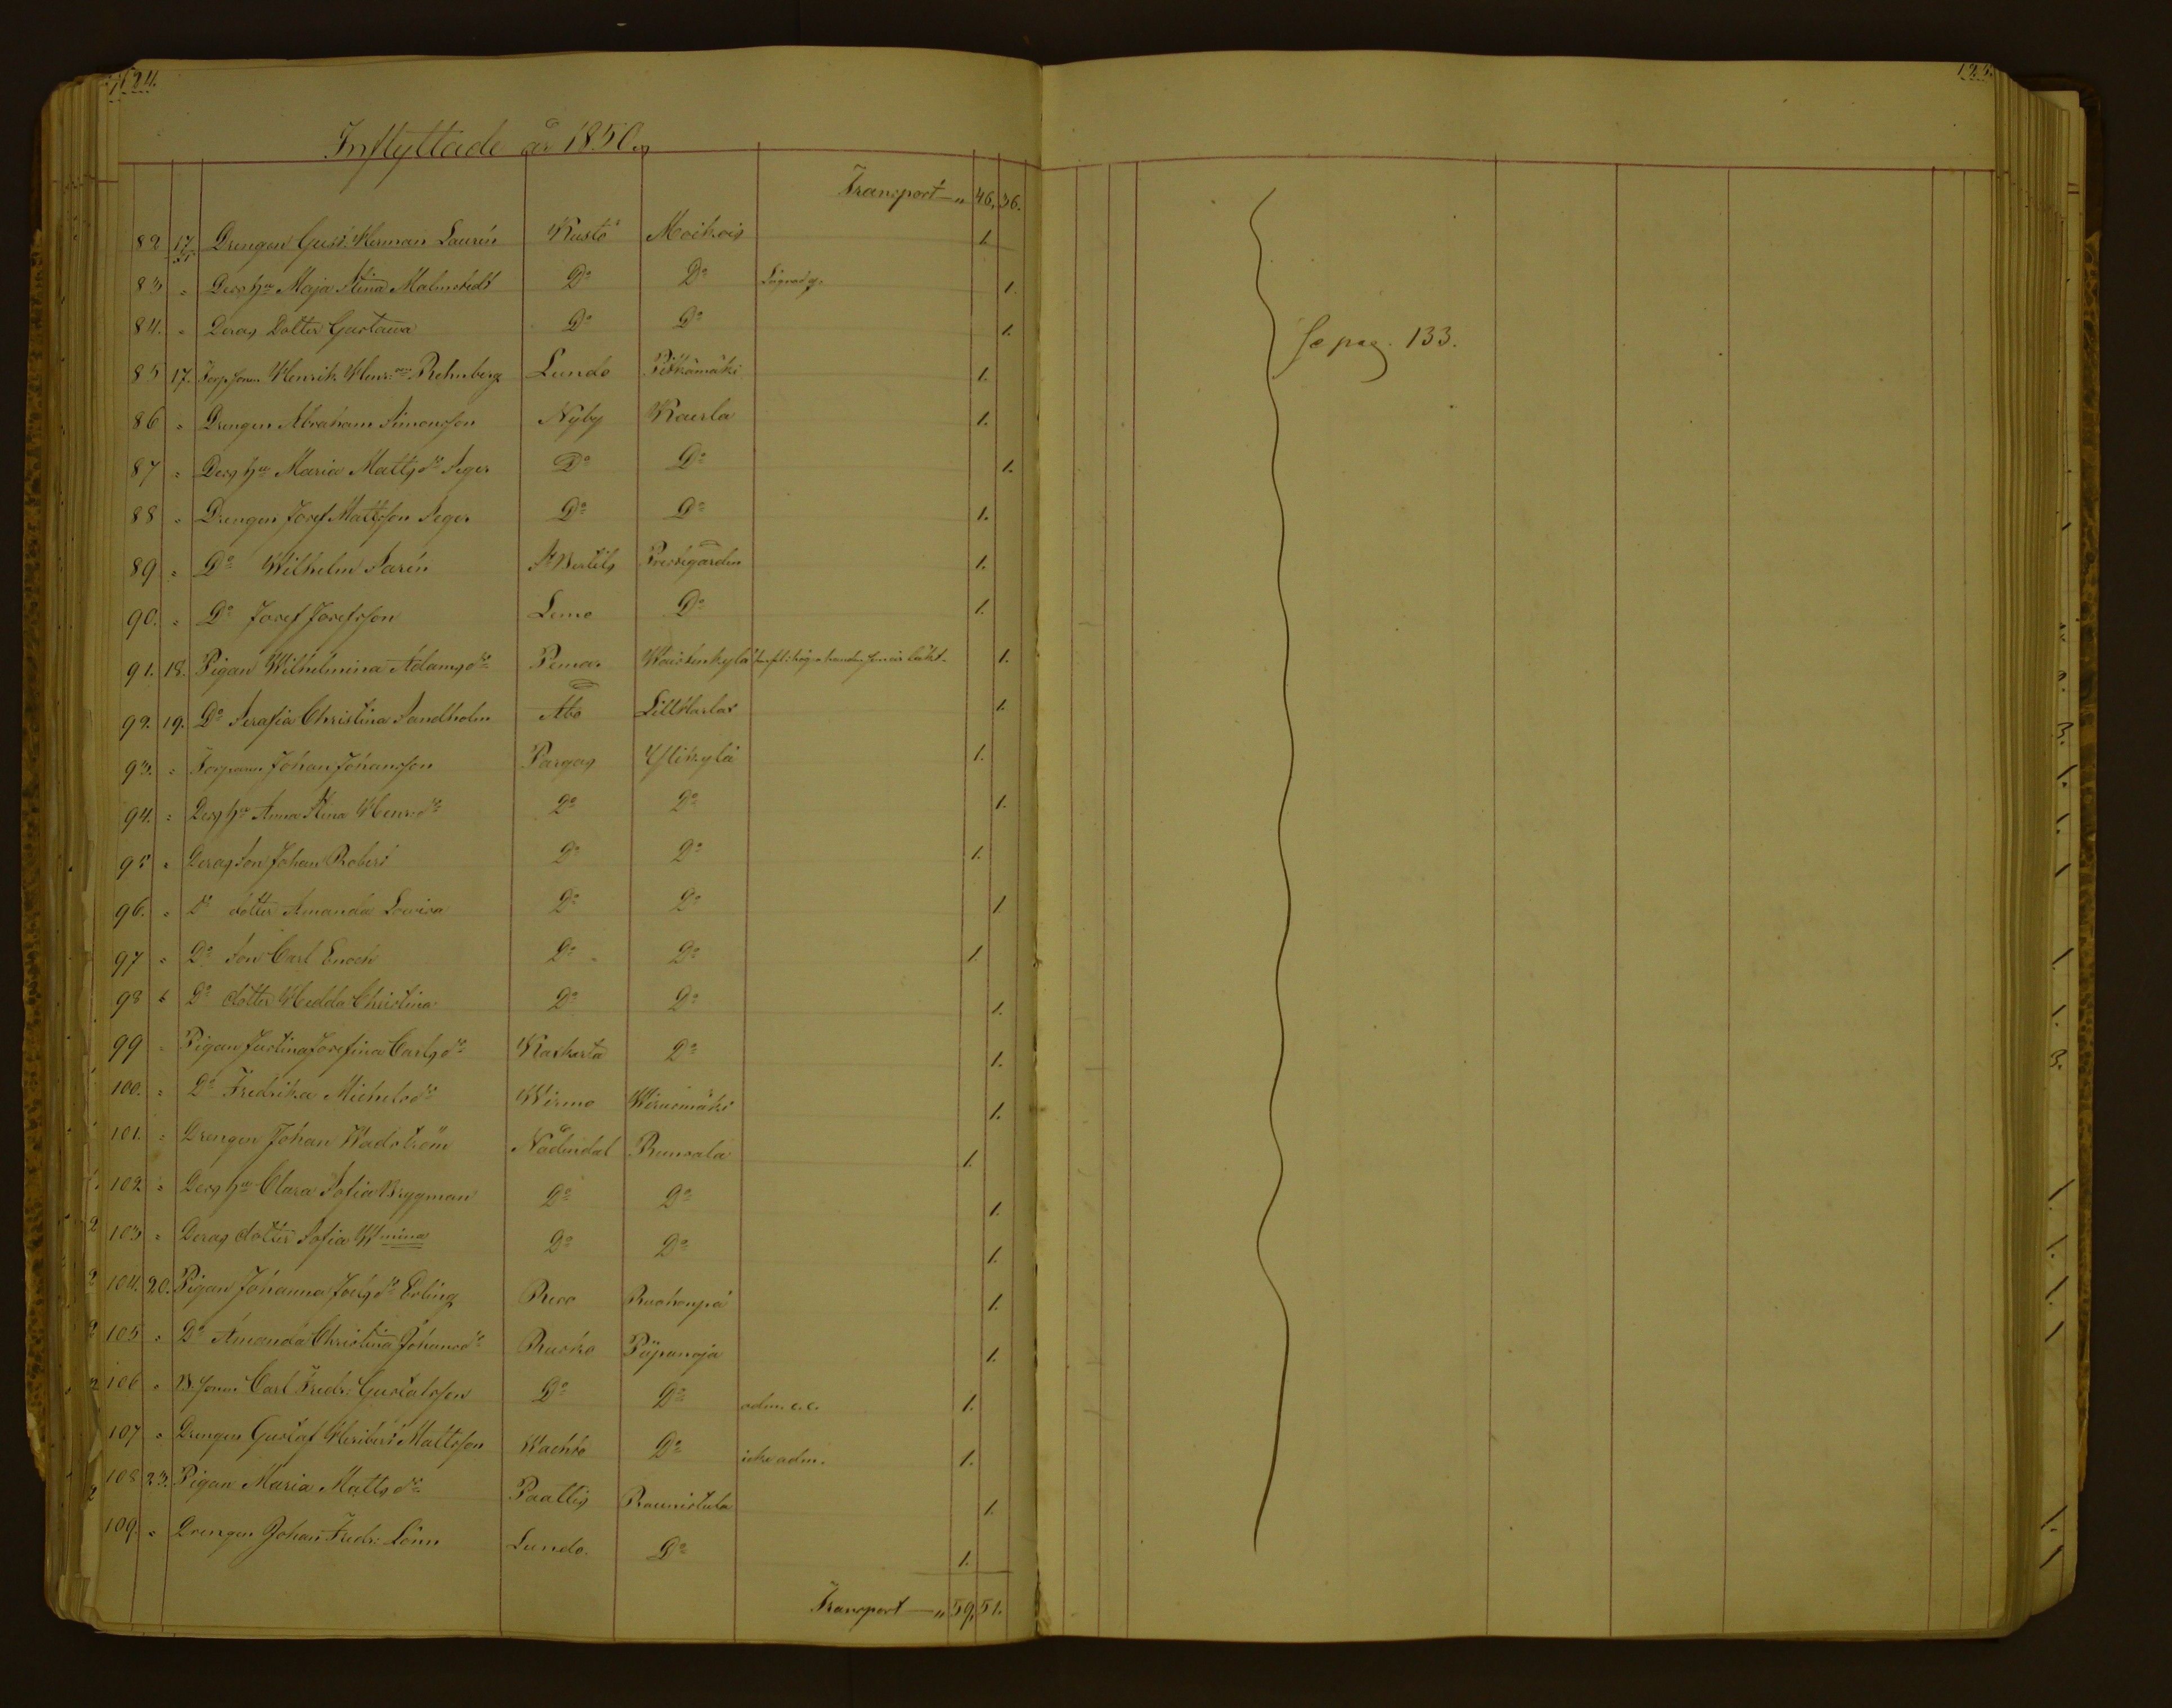 124.
Inflyttade år 1850.
Transport — " 46. 36.
82 17/5 Drengen Gust: Herman Laurén Kustö Moikois 1.
83 " Dess hu Maja Stina Malmstedt Do Do 1.
84. " Deras Dotter Gustawa Do Do 1.
85 17. Henrik Rehnberg Lundo Pitkämäki 1.
86 " Drengen Abraham Simonsson Nyby Kaerla 1.
87 " Dess hu Maria Mattsdr Seger Do Do 1.
88 " Drengen Josef Mattsson Seger Do Do 1.
89 " Do Wilhelm Sarén St Bertils Prestgården 1.
90. " Do Josef Josefsson Lemo Do 1.
91. 18. Pigan Wilhelmina Adamsdr Pemar 1.
92. 19. Do Serafia Christina Sandholm Åbo Lill 1.
93. " Johan Johansson Pargas Ylikylä 1.
94. " Dess hu Anna Stina Henrsdr Do Do 1.
95 " Deras Son Johan Robert Do Do 1.
96. " Do dotter Amanda Lovisa Do Do 1.
97 " Do Son Carl Enoch Do Do 1.
98 " Do dotter Hedda Christina Do Do 1.
99 " Pigan Justina Josefina Carlsdr Kaskerta Do 1.
100. " Do Fredrika Michelsdr Wirmo Wirusmäki 1.
101. " Drengen Johan Wadström Nådendal Runsala 1.
102. " Dess hu Clara Sofia Bryggman Do Do 1.
103 " Deras dotter Sofia Wmina Do Do 1.
104. 20. Pigan Johanna Erling Reso Ruohonpä 1.
105 " Do Amanda Christina Johansdr Rusko Päpanoja 1.
106 " Carl Fredr: Gustafsson Do Do adm. e.c. 1.
107 " Drengen Gustaf Heribert Mattsson Wachto Do icke adm. 1.
108 23. Pigan Maria Mattsdr Paattis Raunistula 1.
109. " Drengen Johan Fredr: Lönn Lundo. Do 1.
Transport — " 59. 51.
125.
Se pag. 133.